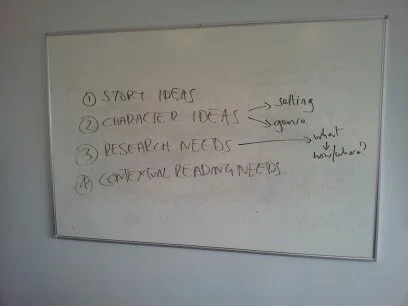 ① STORY IDEAS
② CHARACTER IDEAS → setting
→ genre
③ RESEARCH NEEDS → what
↓
how/where?
④ CONTEXTUAL READING NEEDS